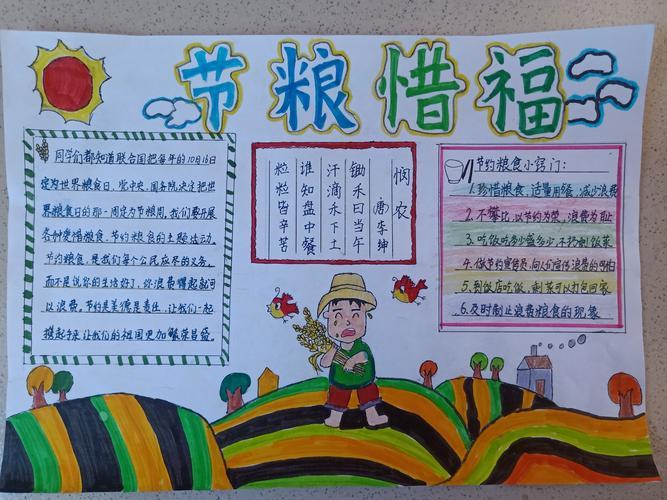 节粮惜福
同学们都知道联合国把每年的10月16日
定为世界粮食日，党中央、国务院决定把世
界粮食日的那一周定为节粮周。我们要开展
各种爱惜粮食，节约粮食的主题活动。
节约粮食，是我们每个公民应尽的义务。
而不是说你的生活好了，你浪费得起就可
以浪费。节约是美德是责任，让我们一起
携起手来让我们的祖国更加繁荣昌盛。
悯农
唐 李绅
锄禾日当午
汗滴禾下土
谁知盘中餐
粒粒皆辛苦
节约粮食小窍门：
1.珍惜粮食，适量用餐，减少浪费
2.不攀比，以节约为荣，浪费为耻
3.吃饭吃多少盛多少，不扔剩饭菜
4.做节约宣传员，向人们宣传浪费的可怕
5.到饭店吃饭，剩菜可以打包回家
6.及时制止浪费粮食的现象